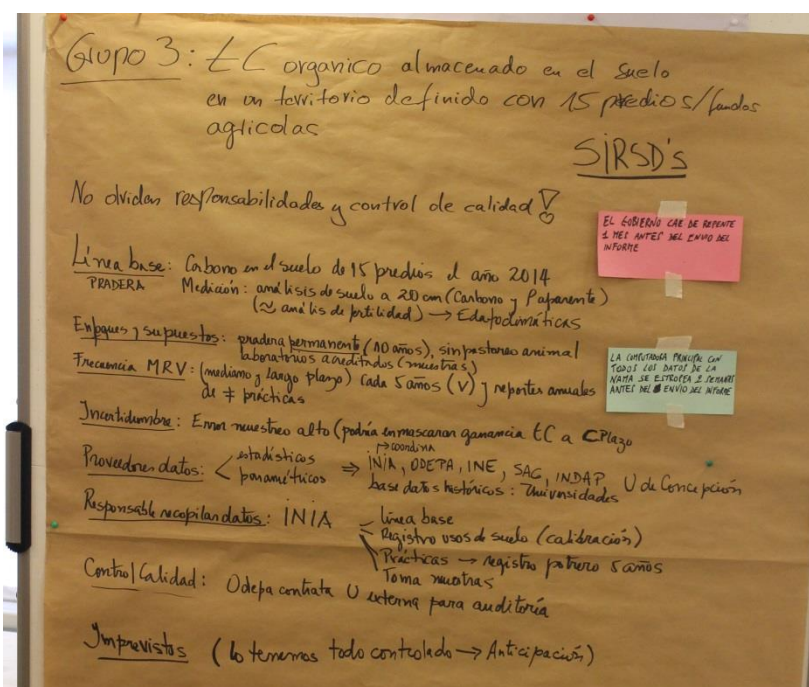 Grupo 3: tC organico almacenado en el suelo
en un territorio definido con 15 predios/fundos
agricolas
SIRSD's
No olviden responsabilidades y control de calidad!
EL GOBIERNO CAE DE REPENTE
1 MES ANTES DEL ENVIO DEL
INFORME
Línea base: Carbono en el suelo de 15 predios el año 2014
PRADERA Medición: análisis de suelo a 20 cm (Carbono y Paparente)
(≈ análisis de fertilidad) → Edafoclimáticas
Enfoques y supuestos: pradera permanente (10 años), sin pastoreo animal
laboratorios acreditados (muestras)
Frecuencia MRV: (mediano y largo plazo) cada 5 años (V) y reportes anuales
de ≠ prácticas
LA COMPUTADORA PRINCIPAL CON
TODOS LOS DATOS DE LA
NAMA SE ESTROPEA 2 SEMANAS
ANTES DEL ENVIO DEL INFORME
Incertidumbre: Error muestreo alto (podría enmascarar ganancia tC a CPlazo
Proveedores datos: estadísticos
paramétricos
⇒ INIA, ODEPA, INE, SAG, INDAP, U de Concepción
↱ coordina
base datos históricos: Universidades
Responsable recopilar datos: INIA
línea base
Registro usos de suelo (calibración)
Prácticas → registro potrero 5 años
Toma muestras
Control Calidad: Odepa contrata U externa para auditoría
Imprevistos (lo tenemos todo controlado → Anticipación)